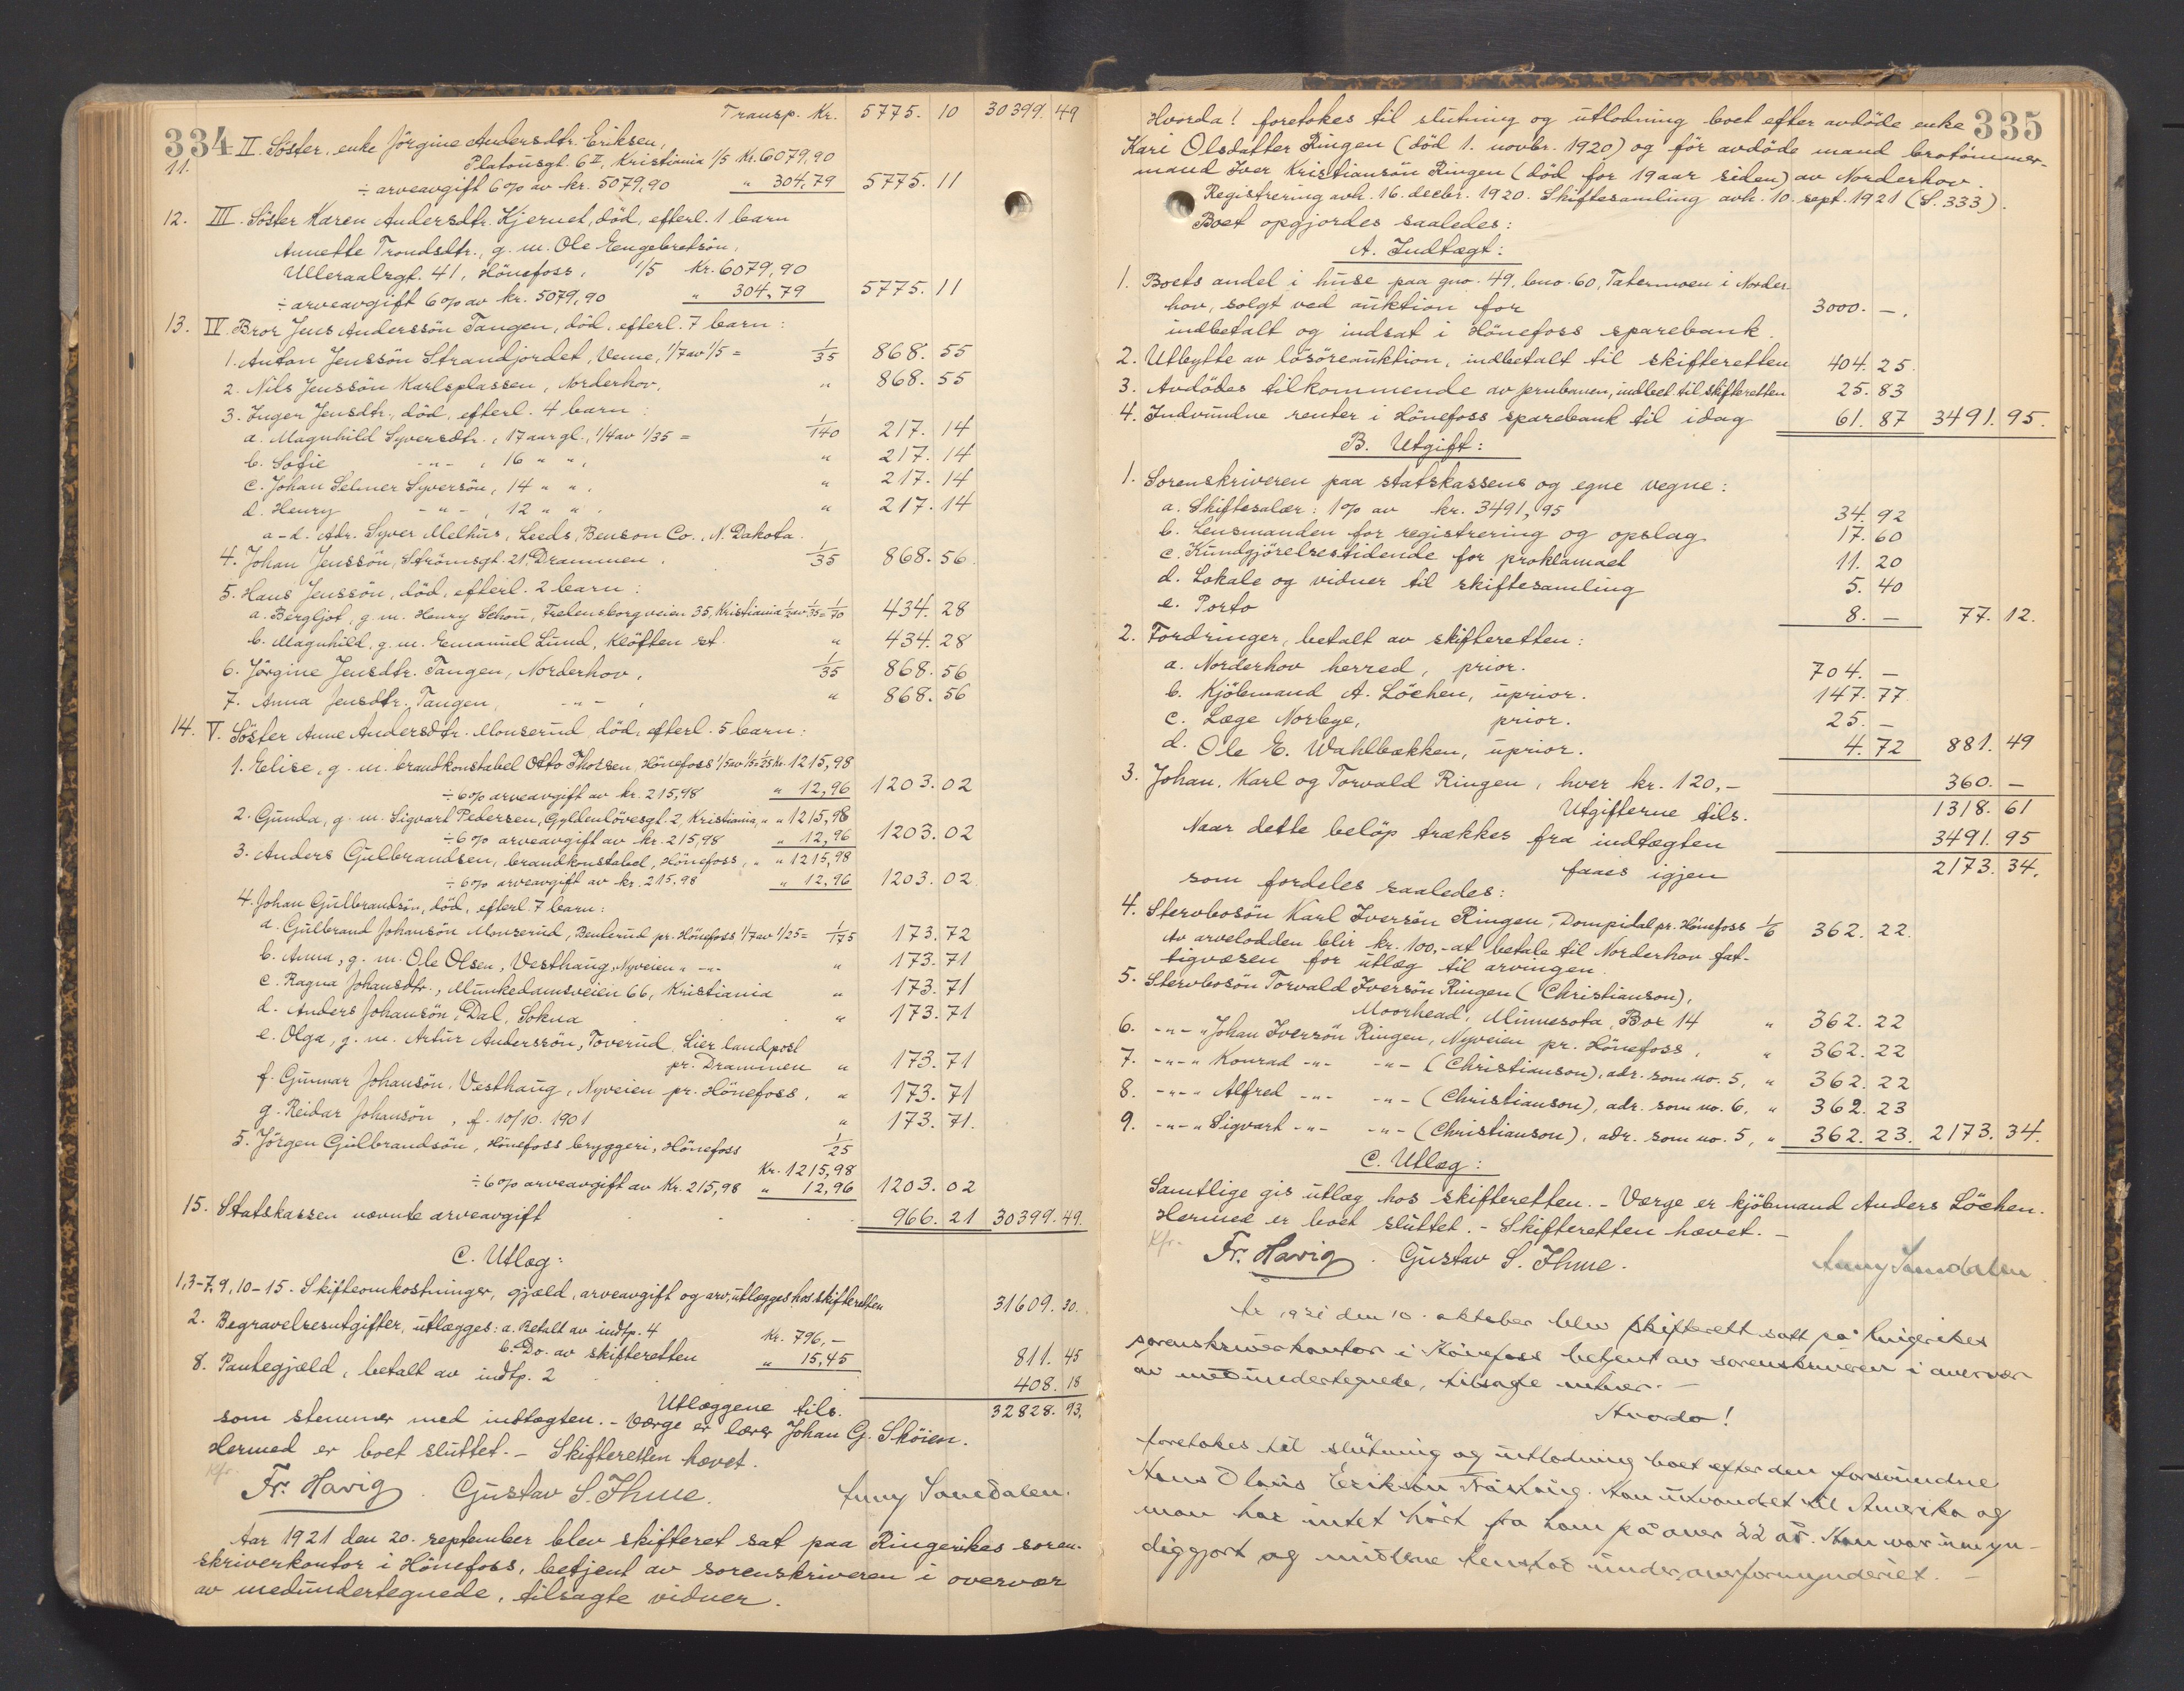 334
Transp. Kr. 5775. 10 30399. 49
11. II. Söster, enke Jörgine Andersdtr. Eriksen,
Platousgt. 6 II, Kristiania 1/5 Kr. 6079,90
÷ arveavgift 6% av kr. 5079,90 " 304,79 5775. 11
12. III. Söster Karen Andersdtr. Kjernet, död, efterl. 1 barn
Annette Trondsdtr., g. m. Ole Engebretsön,
Ulleraalsgt. 41, Hönefoss, 1/5 Kr. 6079,90
÷ arveavgift 6% av kr. 5079,90 " 304,79 5775. 11
13. IV. Bror Jens Anderssön Tangen, död, efterl. 7 barn:
1. Anton Jenssön Strandjordet, Veme, 1/7 av 1/5 = 1/35 868. 55
2. Nils Jenssön Karlsplassen, Norderhov, " 868. 55
3. Inger Jensdtr., död, efterl. 4 barn:
a. Magnhild Syversdtr., 17 aar gl., 1/4 av 1/35 = 1/140 217. 14
b. Sofie -"- , 16 " " , " 217. 14
c. Johan Selmer Syversön, 14 " " . " 217. 14
d. Henry -"- , 12 " " . " 217. 14
a-d. Adr. Syver Melhus, Leeds, Benson Co., N. Dakota.
4. Johan Jenssön, Strömsgt. 21, Drammen. 1/35 868. 56
5. Hans Jenssön, död, efterl. 2 barn:
a. Bergljot, g. m. Henry Schou, Frelensborgveien 35, Kristiania 1/2 av 1/35 = 1/70 434. 28
b. Magnhild, g. m. Emanuel Lund, Klöften st. " 434. 28
6. Jörgine Jensdtr. Tangen, Norderhov, 1/35 868. 56
7. Anna Jensdtr. Tangen, -"- , " 868. 56
14. V. Söster Anne Andersdtr. Monserud, död, efterl. 5 barn:
1. Elise, g. m. brandkonstabel Otto Thorsen, Hönefoss 1/5 av 1/5 = 1/25 Kr. 1215,98
÷ 6% arveavgift av kr. 215,98 " 12,96 1203. 02
2. Gunda, g. m. Sigvart Pedersen, Gyldenlövesgt. 2, Kristiania, " " 1215,98
÷ 6% arveavgift av kr. 215,98 " 12,96 1203. 02
3. Anders Gulbrandsen, brandkonstabel, Hönefoss, " " 1215,98
÷ 6% arveavgift av kr. 215,98 " 12,96 1203. 02
4. Johan Gulbrandsön, död, efterl. 7 barn:
a. Gulbrand Johansön Monserud, Benterud pr. Hönefoss 1/7 av 1/25 = 1/175 173. 72
b. Anna, g. m. Ole Olsen, Vesthaug, Nyveien " -"- " 173. 71
c. Ragna Johansdtr., Munkedamsveien 66, Kristiania " 173. 71
d. Anders Johansön, Dal, Sokna " 173. 71
e. Olga, g. m. Artur Anderssön, Toverud, Lier landpost
pr. Drammen " 173. 71
f. Gunnar Johansön, Vesthaug, Nyveien pr. Hönefoss, " 173. 71
g. Reidar Johansön, f. 10/10. 1901 " 173. 71.
5. Jörgen Gulbrandsön, Hönefoss bryggeri, Hönefoss 1/25
Kr. 1215,98
÷ 6% arveavgift av Kr. 215,98 " 12,96 1203. 02
15. Statskassen nævnte arveavgift 966. 21 30399. 49.
C. Utlæg:
1, 3-7, 9, 10-15. Skifteomkostninger, gjæld, arveavgift og arv, utlægges hos skifteretten 31609. 30.
2. Begravelsesutgifter, utlægges: a. Betalt av indtp. 4 Kr. 796,-
b. Do. av skifteretten " 15,45 811. 45
8. Pantegjæld, betalt av indtp. 2 408. 18
Utlæggene tils. 32828. 93.
som stemmer med indtægten. - Værge er lærer Johan G. Sköien.
Hermed er boet sluttet. - Skifteretten hævet.
Kfr.
Fr. Havig. Gustav S. Thue. Anny Sandalen.
Aar 1921 den 20. september blev skifteret sat paa Ringerikes soren-
skriverkontor i Hönefoss, betjent av sorenskriveren i overvær
av medundertegnede, tilsagte vidner.
335
Hvorda! foretokes til slutning og utlodning boet efter avdöde enke
Kari Olsdatter Ringen (död 1. novbr. 1920) og för avdöde mand brotömmer-
mand Iver Kristiansön Ringen (död for 19 aar siden) av Norderhov.
Registrering avh. 16. decbr. 1920. Skiftesamling avh. 10. sept. 1921 (S. 333).
Boet opgjordes saaledes:
A. Indtægt:
1. Boets andel i huse paa gno. 49, bno. 60, Tatermoen i Norder-
hov, solgt ved auktion for 3000. -.
indbetalt og indsat i Hönefoss sparebank.
2. Utbytte av lösöreauktion, indbetalt til skifteretten 404. 25.
3. Avdödes tilkommende av jernbanen, indbet. til skifteretten 25. 83
4. Indvundne renter i Hönefoss sparebank til idag 61. 87 3491. 95.
B. Utgift:
1. Sorenskriveren paa statskassens og egne vegne:
a. Skiftesalær: 1% av kr. 3491,95 34. 92
b. Lensmanden for registrering og opslag 17. 60
c. Kundgjörelsestidende for proklamaet 11. 20
d. Lokale og vidner til skiftesamling 5. 40
e. Porto 8. - 77. 12.
2. Fordringer, betalt av skifteretten:
a. Norderhov herred, prior. 704. -
b. Kjöbmand A. Löchen, uprior. 147. 77
c. Læge Norbye, prior. 25. -
d. Ole E. Wahlbækken, uprior. 4. 72 881. 49
3. Johan, Karl og Torvald Ringen, hver kr. 120,- 360. -
Utgifterne tils. 1318. 61
Naar dette belöp trækkes fra indtægten 3491. 95
faaes igjen 2173. 34.
som fordeles saaledes:
4. Stervbosön Karl Iversön Ringen, Dompidal pr. Hönefoss 1/6 362. 22.
Av arvelodden blir kr. 100,- at betale til Norderhov fat-
tigvæsen for utlæg til arvingen.
5. Stervbosön Torvald Iversön Ringen (Christianson),
Moorhead, Minnesota, Box 14 " 362. 22
6. -"- " Johan Iversön Ringen, Nyveien pr. Hönefoss, " 362. 22
7. -"- " Konrad -"- -"- (Christianson), adr. som no. 5, " 362. 22
8. -"- " Alfred -"- -"- (Christianson), adr. som no. 6, " 362. 23
9. -"- " Sigvart -"- -"- (Christianson), adr. som no. 5, " 362. 23. 2173. 34.
C. Utlæg:
Samtlige gis utlæg hos skifteretten. - Værge er kjöbmand Anders Löchen.
Hermed er boet sluttet. - Skifteretten hævet. -
Kfr.
Fr. Havig. Gustav S. Thue. Anny Sandalen.
År 1921 den 10. oktober blev skifterett satt på Ringerikes
sorenskriverkontor i Hönefoss betjent av sorenskriveren i overvær
av medundertegnede, tilsagte vidner. -
Hvorda!
foretokes til slutning og utlodning boet efter den forsvundne
Hans Olaus Erikson . Han utvandret til Amerika og
man har intet hört fra ham på over 22 år. Han var umyn-
diggjort og midlene henstod under overformynderiet. -